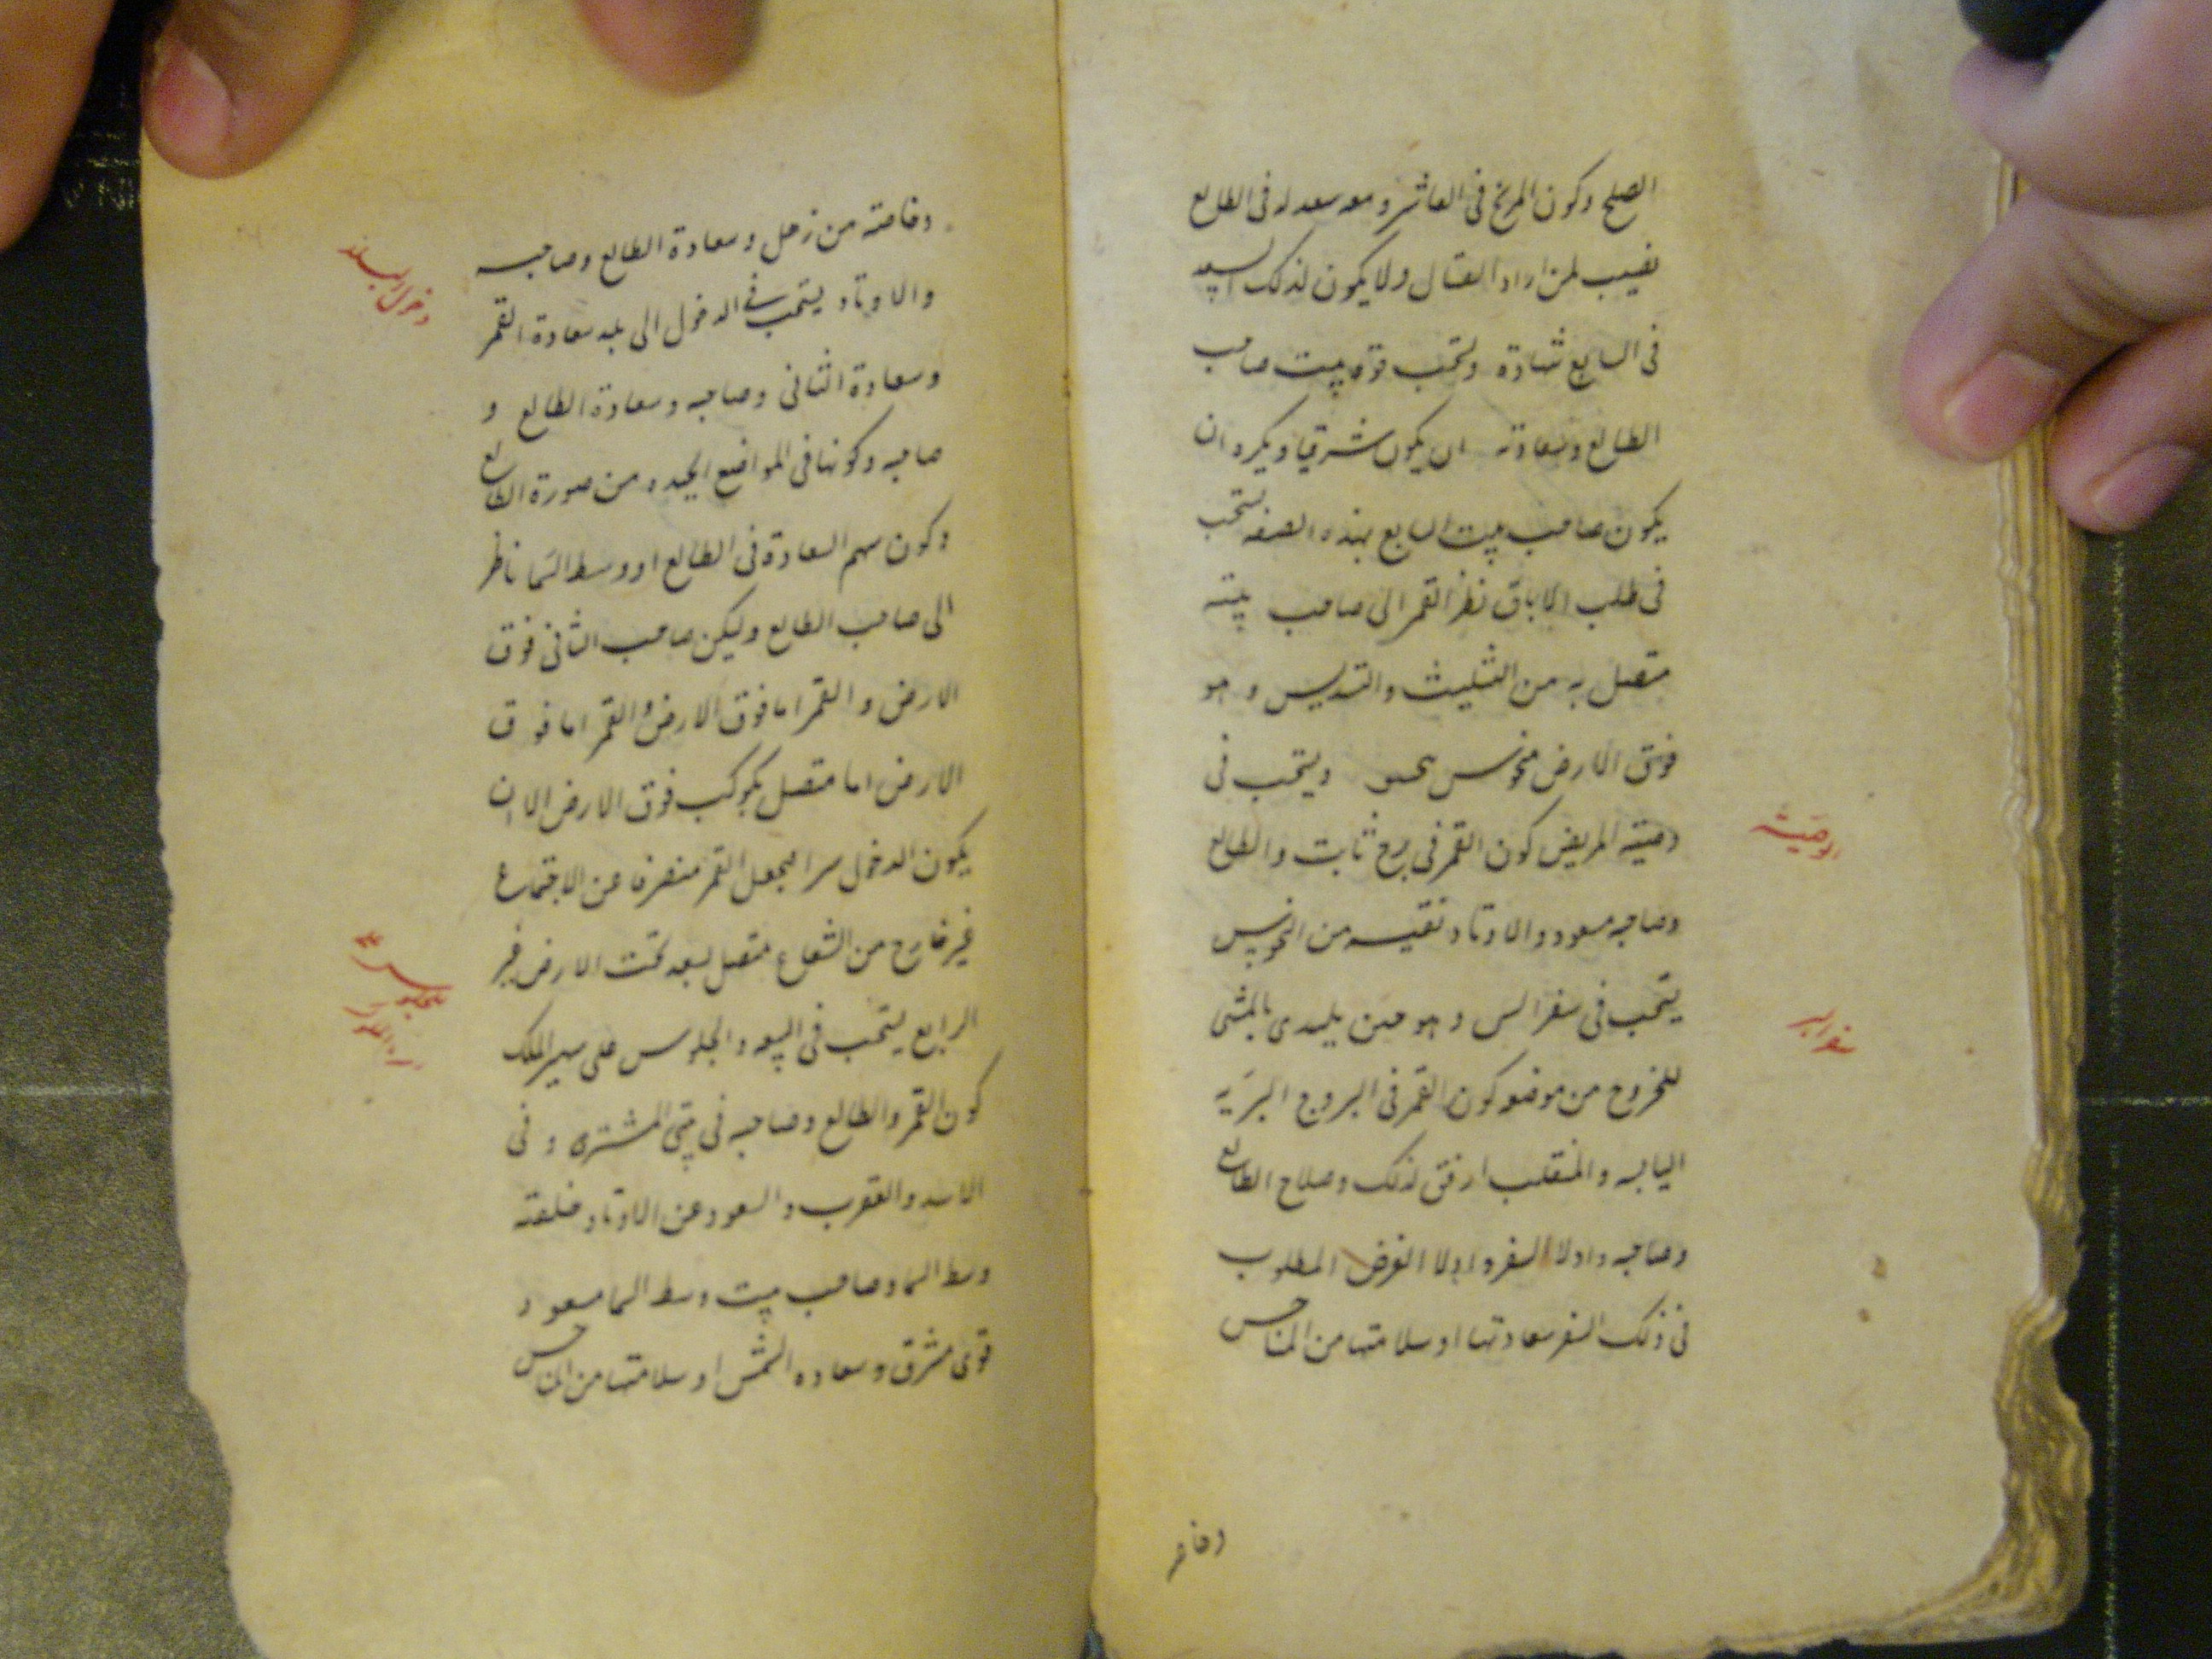 الصلح وكون المريخ فى العاشر و معه سعد له فى الطالع
نصيب لمن اراد القتال ولا يكون لذلك السعد
فى السابع شهادة وتستحب قوة بيت صاحب
الطالع وسعادته ان يكون شرقيا ويكره ان
يكون صاحب بيت السابع بهذه الصفه يستحب
فى طلب الاباق نظر القمر الى صاحب بيته
متصل به من التثليث والتسديس و هو
فوق الارض منحوس ويستحب فى
وصية المريض كون القمر فى برج ثابت والطالع
وصاحبه مسعود والاوتاد نقيه من النحوس
يستحب فى سفر السر و هو حين بالمشى
للخروج من موضع كون القمر فى البروج البرية
اليابسه والمنقلب ارفق لذلك وصلاح الطالع
وصاحبه وادلا السفر وادلا الغرض المطلوب
فى ذلك السفر سعادتها او سلامتها من المناحس
الوصية
سفر السر
وخاصة
وخاصته من زحل وسعادة الطالع وصاحبه
والاوتاد يستحب فى الدخول الى بلد سعادة القمر
وسعادة الثانى وصاحبه وسعادة الطالع و
صاحبه وكونها فى المواضع الجيده من صورة الطالع
وكون سهم السعادة فى الطالع او وسط السما ناظر
الى صاحب الطالع وليكن صاحب الثانى فوق
الارض و القمر اما فوق الارض والقمر اما فوق
الارض اما متصل بكوكب فوق الارض الا ان
يكون الدخول سرا فيجعل القمر منصرفا عن الاجتماع
غير خارج من الشعاع متصل بسعد تحت الارض فى
الرابع يستحب فى البيعه والجلوس على سرير الملك
كون القمر والطالع وصاحبه فى بيتى المشترى و فى
الاسد والعقرب والسعود عن الاوتاد خلفته
وسط السما وصاحب بيت وسط السما مسعود
قوى مشرق وسعاده الشمس او سلامتها من المناحس
دخول البلد